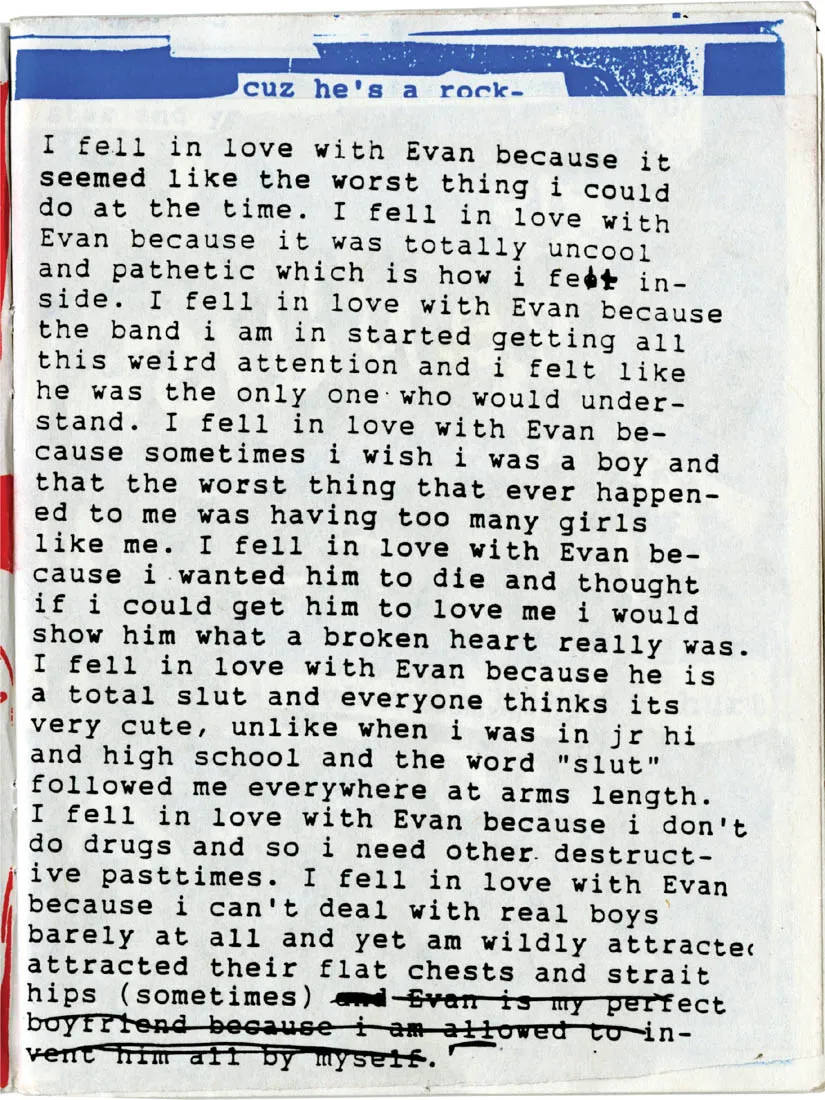 cuz he's a rock-
I fell in love with Evan because it
seemed like the worst thing i could
do at the time. I fell in love with
Evan because it was totally uncool
and pathetic which is how i felt in-
side. I fell in love with Evan because
the band i am in started getting all
this weird attention and i felt like
he was the only one who would under-
stand. I fell in love with Evan be-
cause sometimes i wish i was a boy and
that the worst thing that ever happen-
ed to me was having too many girls
like me. I fell in love with Evan be-
cause i wanted him to die and thought
if i could get him to love me i would
show him what a broken heart really was.
I fell in love with Evan because he is
a total slut and everyone thinks its
very cute, unlike when i was in jr hi
and high school and the word "slut"
followed me everywhere at arms length.
I fell in love with Evan because i don't
do drugs and so i need other destruct-
ive pasttimes. I fell in love with Evan
because i can't deal with real boys
barely at all and yet am wildly attracted
attracted their flat chests and strait
hips (sometimes) and Evan is my perfect
boyfriend because i am allowed to in-
vent him all by myself.